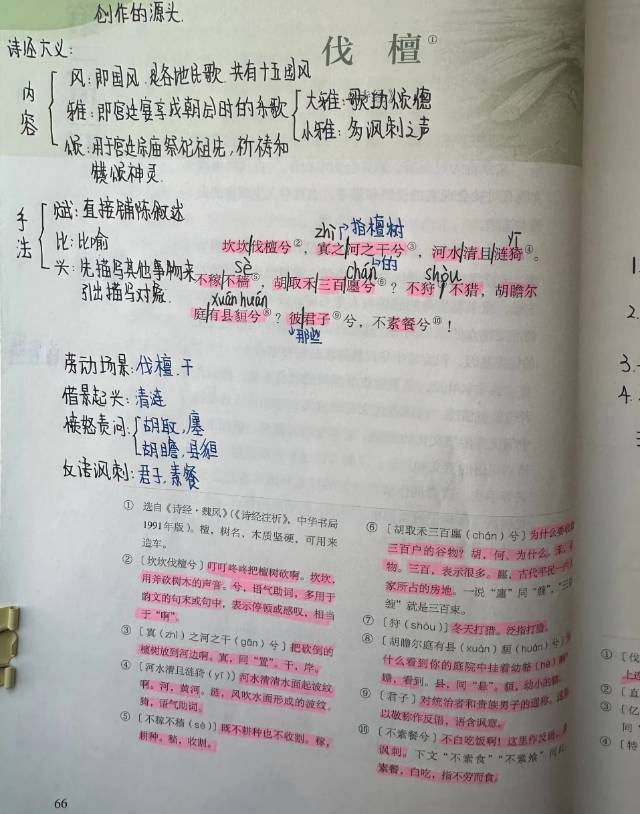 创作的源头.
诗经六义:
内容
风:即国风 是各地民歌 共有十五国风
雅:即宫廷宴享或朝会时的乐歌
大雅:歌功颂德
小雅:多讽刺之声
颂:用于宫廷宗庙祭祀祖先,祈祷和
赞颂神灵.
手法
赋:直接铺陈叙述
比:比喻
兴:先描写其他事物来
引出描写对象.
伐 檀①
zhì 指檀树 yī
坎坎伐檀兮②,寘之河之干兮③,河水清且涟猗④。
sè 的 chán shòu
不稼不穑⑤,胡取禾三百廛兮⑥?不狩⑦不猎,胡瞻尔
xuán huán
庭有县貆兮⑧?彼君子⑨兮,不素餐兮⑩!
那些
劳动场景:伐檀.干
借景起兴:清涟
愤怒责问:胡取,廛
胡瞻,县貆
反语讽刺:君子,素餐
① 选自《诗经·魏风》(《诗经注析》,中华书局
1991年版)。檀,树名,木质坚硬,可用来
造车。
② 〔坎坎伐檀兮〕叮叮咚咚把檀树砍啊。坎坎,
用斧砍树木的声音。兮,语气助词,多用于
韵文的句末或句中,表示停顿或感叹,相当
于“啊”。
③ 〔寘(zhì)之河之干(gān)兮〕把砍倒的
檀树放到河边啊。寘,同“置”。干,岸。
④ 〔河水清且涟猗(yī)〕河水清清水面起波纹
啊。河,黄河。涟,风吹水面形成的波纹。
猗,语气助词。
⑤ 〔不稼不穑(sè)〕既不耕种也不收割。稼,
耕种。穑,收割。
⑥ 〔胡取禾三百廛(chán)兮〕为什么要收
三百户的谷物?胡,何、为什么。禾,
物。三百,表示很多。廛,古代平民一
家所占的房地。一说“廛”同“缠”,“三
缠”就是三百束。
⑦ 〔狩(shòu)〕冬天打猎。泛指打猎。
⑧ 〔胡瞻尔庭有县(xuán)貆(huán)兮〕
什么看到你的庭院中挂着幼貉(hé)
瞻,看到。县,同“悬”。貆,幼小的
⑨ 〔君子〕对统治者和贵族男子的通称。
以敬称作反语,语含讽意。
⑩ 〔不素餐兮〕不白吃饭啊!这里作反语,
讽刺。下文“不素食”“不素飧”同此。
素餐,白吃,指不劳而食。
66
1.
2.
3.
4.
① 〔伐
② 〔直
③ 〔亿
同
④ 〔特